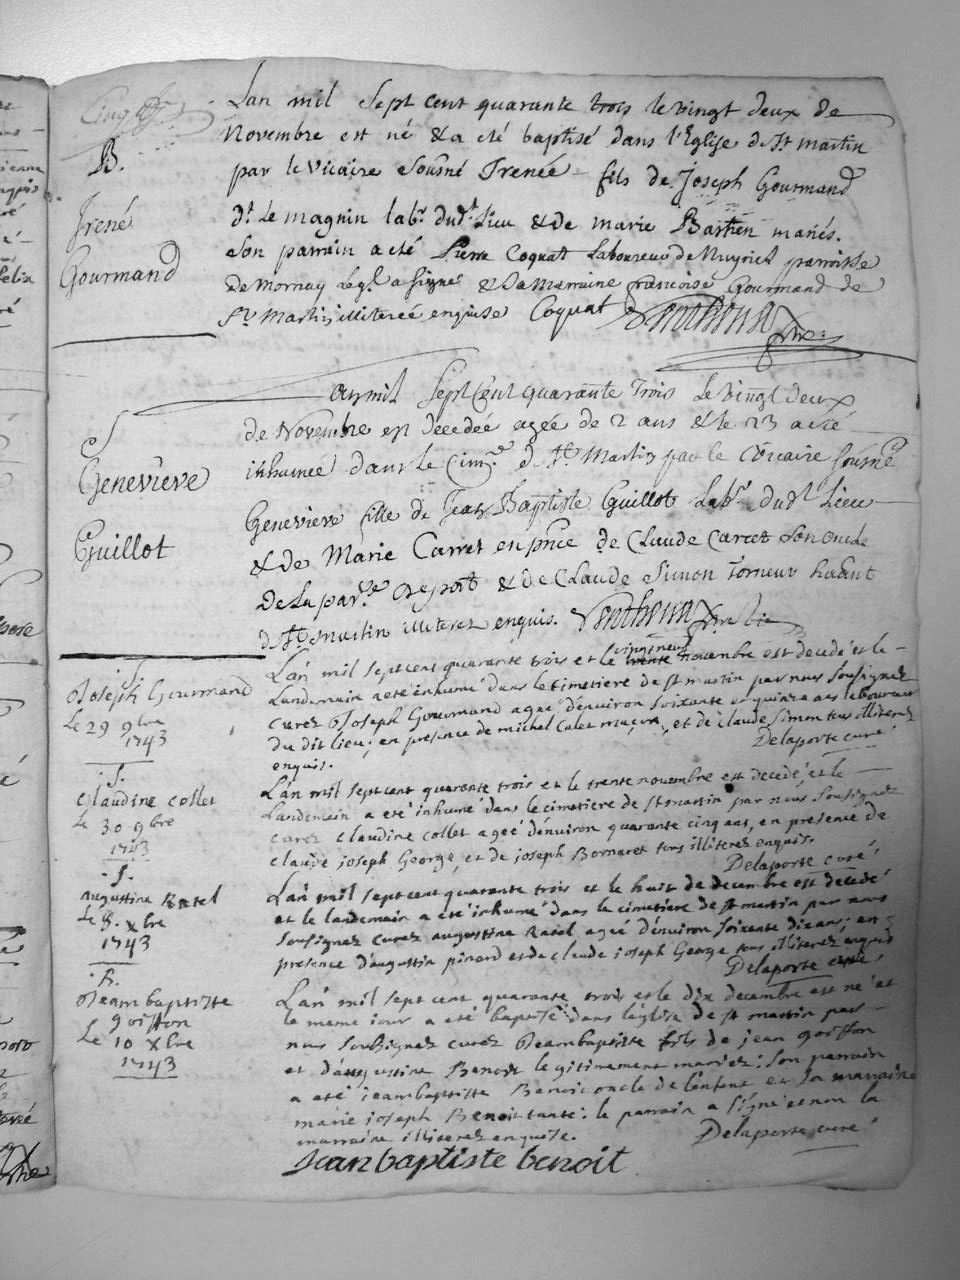 B.
Irené
Gourmand
Lan mil Sept cent quarante trois le vingt deux de
Novembre est né & a eté baptisé dans l'Eglise de St martin
par le vicaire Sousné Irenée fils de Joseph Gourmand
dt Le magnin labr. dudt. Lieu & de marie Bastien mariés.
Son parrain a eté Pierre Coquat Laboureur de parroisse
de Mornay leql. a signé & Sa Marraine francoise Gourmand de
St. Martin illiterée enquise Coquat
S
Genevieve
Guillot
an mil Sept Cent Quarante Trois Le vingt deux
de Novembre est decedée agée de 2 ans & le 23 a eté
inhumée dans le Cime. de St. Martin par le vicaire Sousné
Genevieve fille de Jean Baptiste Guillot Labr. dudt Lieu
& de Marie Carret en pnce de Claude Carret Son oncle
de La parse. & de Claude Simon Torneur
de St martin illiterez enquis.
S
Joseph Gourmand
Le 29 9bre
1743
L'an mil sept cent quarante trois et le vint neuf novembre est decedé et le
Landemain a eté inhumé dans le cimetiere de st martin par nous soussignez
curez Joseph Gourmand agee d'environ soixante et quinze ans laboureur
du dit lieu; en presence de michel Calet maçon, et de claude Simon tous illiterez
enquis. Delaporte curé
.S.
Claudine collet
Le 30 9bre
1743
L'an mil sept cent quarante trois et le trente novembre est decedé, et le
Landemain a eté inhumé dans le cimetiere de st martin par nous soussignez
curez Claudine collet ageé d'environ quarante cinq ans, en presence de
claude joseph George, et de joseph Bornaret tous illiterez enquis.
Delaporte curé
.S.
augustine Ratel
Le 8. xbre
1743
L'an mil sept cent quarante trois et le huit de decembre est decedé
et le landemain a eté inhumé dans le cimetiere de st martin par nous
soussignez curez augustine ageé d'environ soixante dix ans; en
presence d'augustin pinard et de claude joseph George tous illiterez enquis
Delaporte curé
.B.
Jeambaptiste
goiffon
Le 10 xbre
1743
L'an mil sept cent quarante trois et le dix decembre est né et
le meme jour a eté baptisé dans l'église de st martin par
nous soussignez curez Jeambaptiste fils de jean goiffon
et d'augustine Benoit legitimement mariez: Son parrain
a eté jeambaptiste Benoit oncle de l'enfant et Sa marraine
marie joseph Benoit tante: le parrain a signé et non la
marraine illiterez enquise. Delaporte curé
Jean baptiste benoit